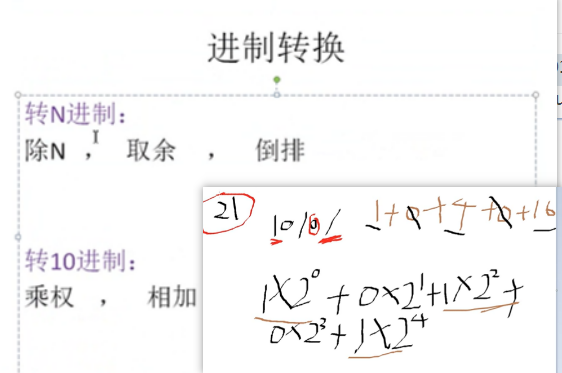 进制转换
转N进制：
除N ， 取余 ， 倒排
转10进制：
乘权 ， 相加
21 10101 1+0+4+0+16
1×2⁰+0×2¹+1×2²+
0×2³+1×2⁴